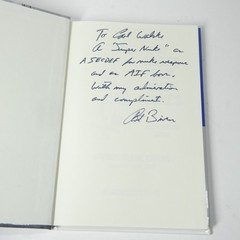 To Carl Walske
A "Super Nuke" as
ASECDEF for nuke weapons
and an AIF boss,
With my admiration
and compliments.